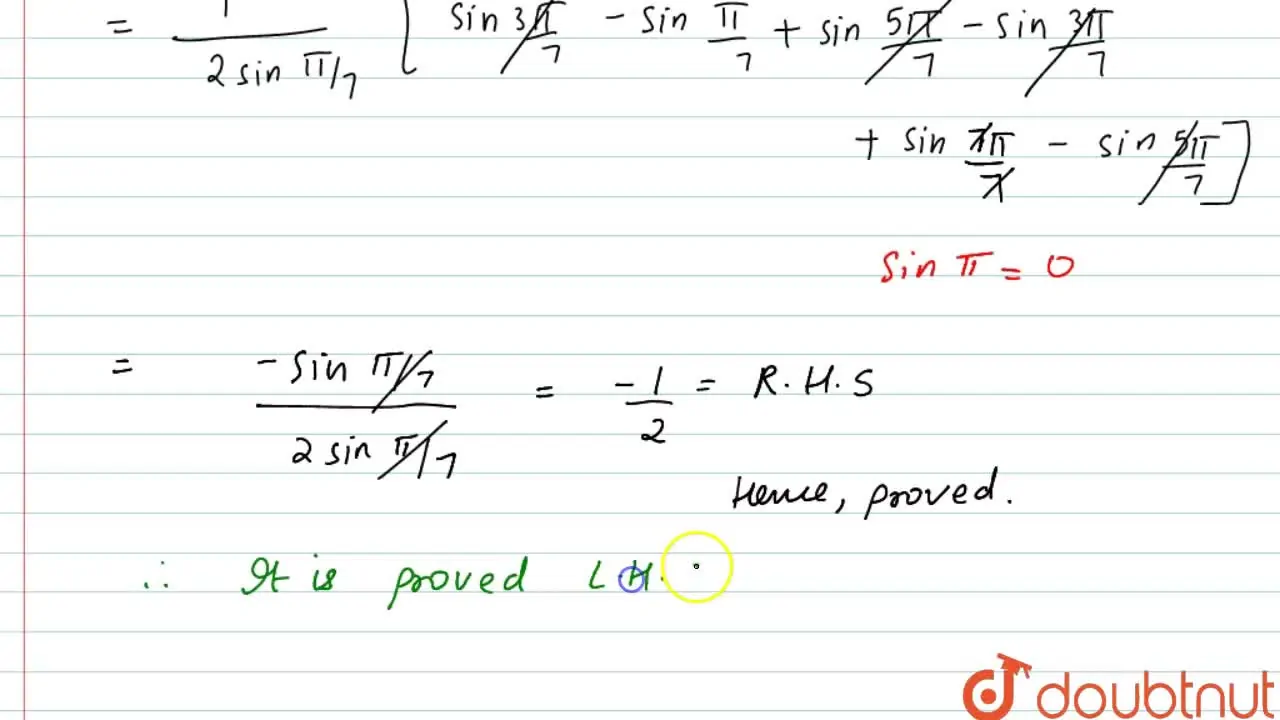 = 1/(2 sin π/7) [ sin 3π/7 - sin π/7 + sin 5π/7 - sin 3π/7
+ sin 7π/7 - sin 5π/7 ]
sin π = 0
= - sin π/7 / 2 sin π/7 = -1/2 = R.H.S
Hence, proved.
∴ It is proved L.H.
doubtnut